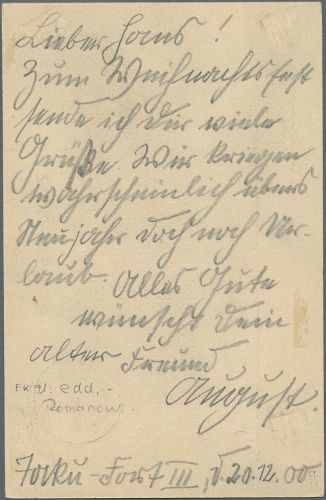 Lieber Hans!
Zum Weihnachtsfest
sende ich dir viele
Grüße. Wir kriegen
wahrscheinlich übers
Neujahr doch noch Ur-
laub. Alles Gute
wünscht dein
alter Freund
August.
EK gl: edd,-
Romanow
Taku-Fort III, d. 20.12.00